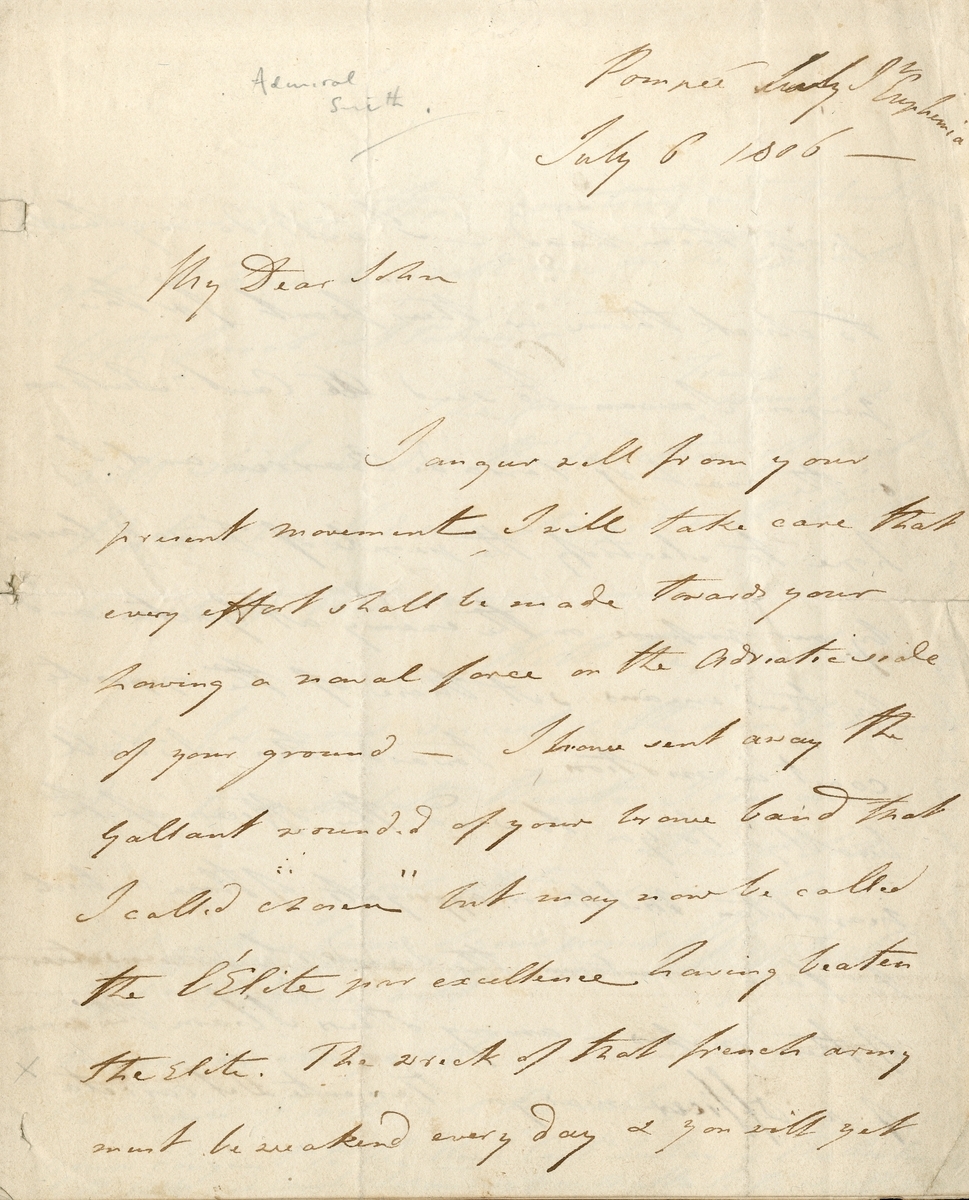 Admiral
Smith.
Pompeé St Euphemia
July 6 1806 —
My Dear John
I augur well from your
present movement, I will take care that
every effort shall be made towards your
having a naval force on the Adriatic side
of your ground — I have sent away the
Gallant wounded of your brave band that
I called "chosen" but may now be called
the l'Élite par excellence having beaten
the Elite. The wreck of that french army
must be weakend every day & you will yet